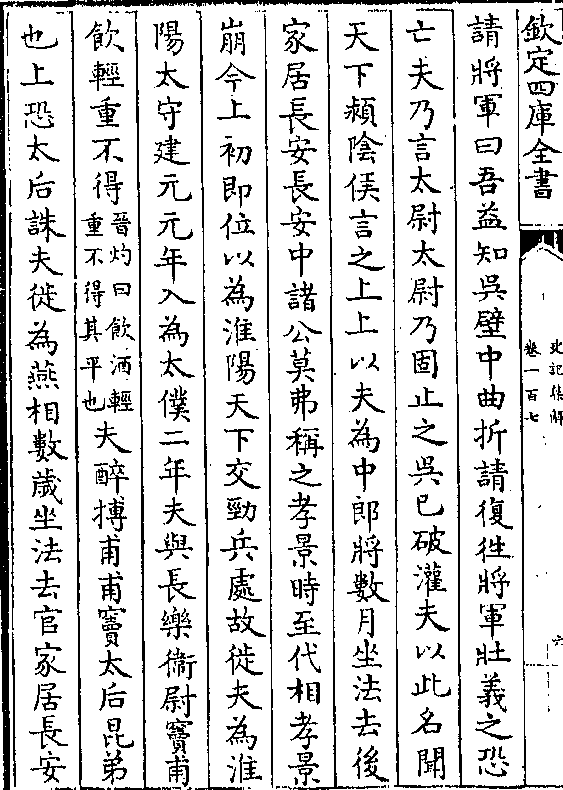 欽定四庫全書
史記集解
卷一百七
六
請將軍曰吾益知吳壁中曲折請復往將軍壯義之恐
亡夫乃言太尉太尉乃固止之吳已破灌夫以此名聞
天下潁陰侯言之上上以夫為中郎將數月坐法去後
家居長安長安中諸公莫弗稱之孝景時至代相孝景
崩今上初即位以為淮陽天下交勁兵處故徙夫為淮
陽太守建元元年入為太僕二年夫與長樂衛尉竇甫
飲輕重不得晉灼曰飲酒輕重不得其平也夫醉搏甫甫竇太后昆弟
也上恐太后誅夫徙為燕相數歲坐法去官家居長安